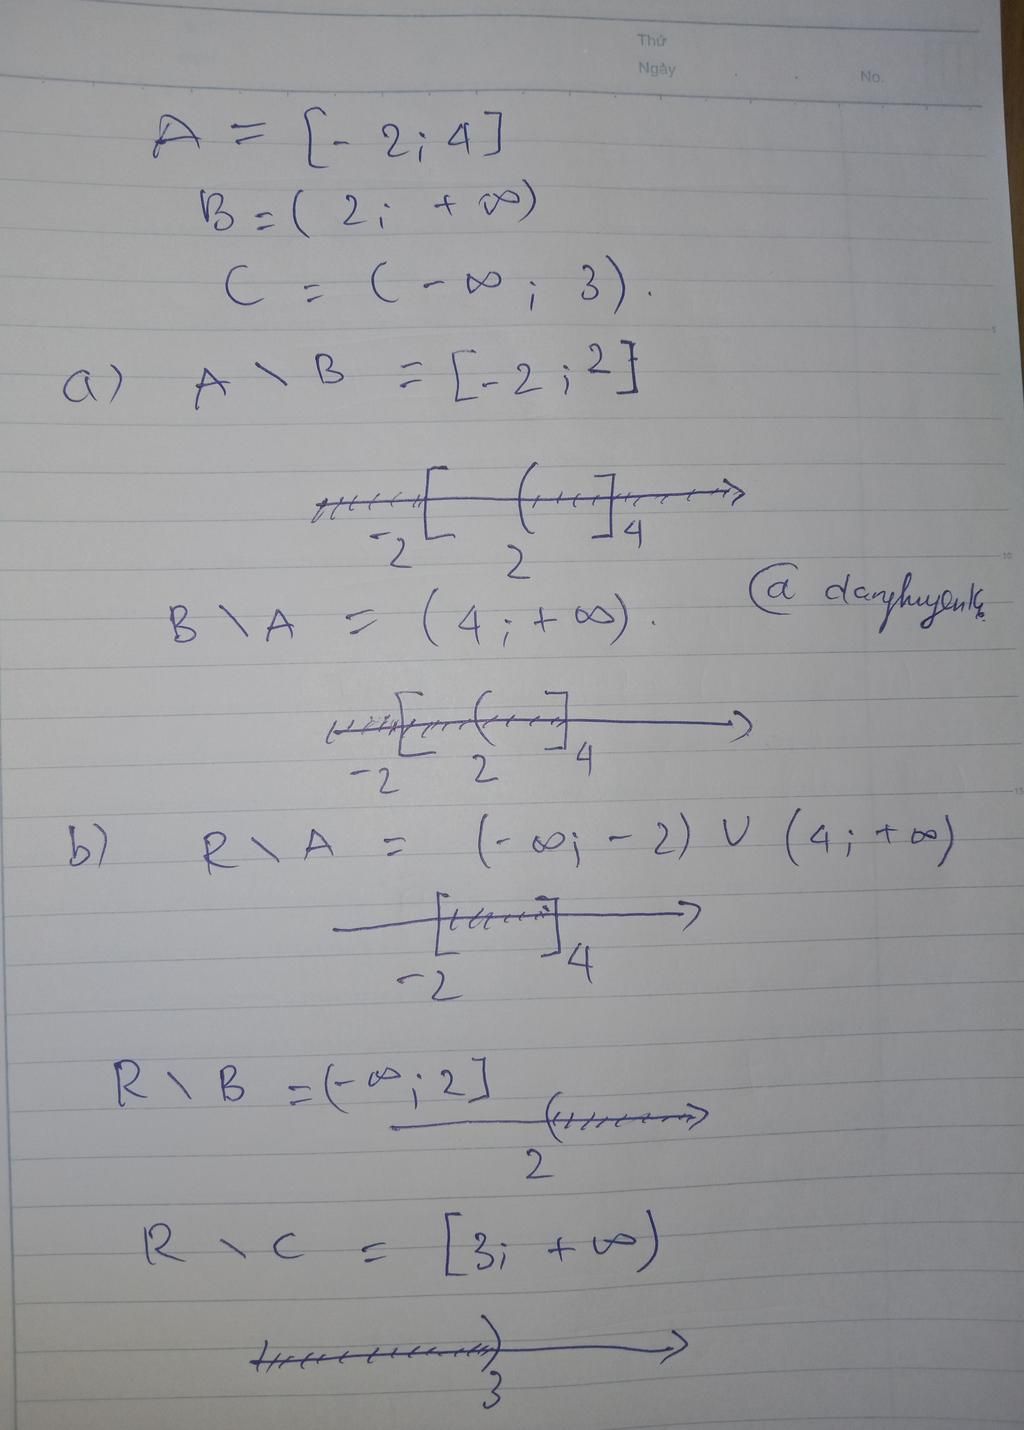 Thứ
Ngày
No.
A = [-2; 4]
B = (2; +∞)
C = (-∞; 3).
a) A \ B = [-2; 2]
-2 2 4
B \ A = (4; +∞).
-2 2 4
b) R \ A = (-∞; -2) ∪ (4; +∞)
-2 4
R \ B = (-∞; 2]
2
R \ C = [3; +∞)
3